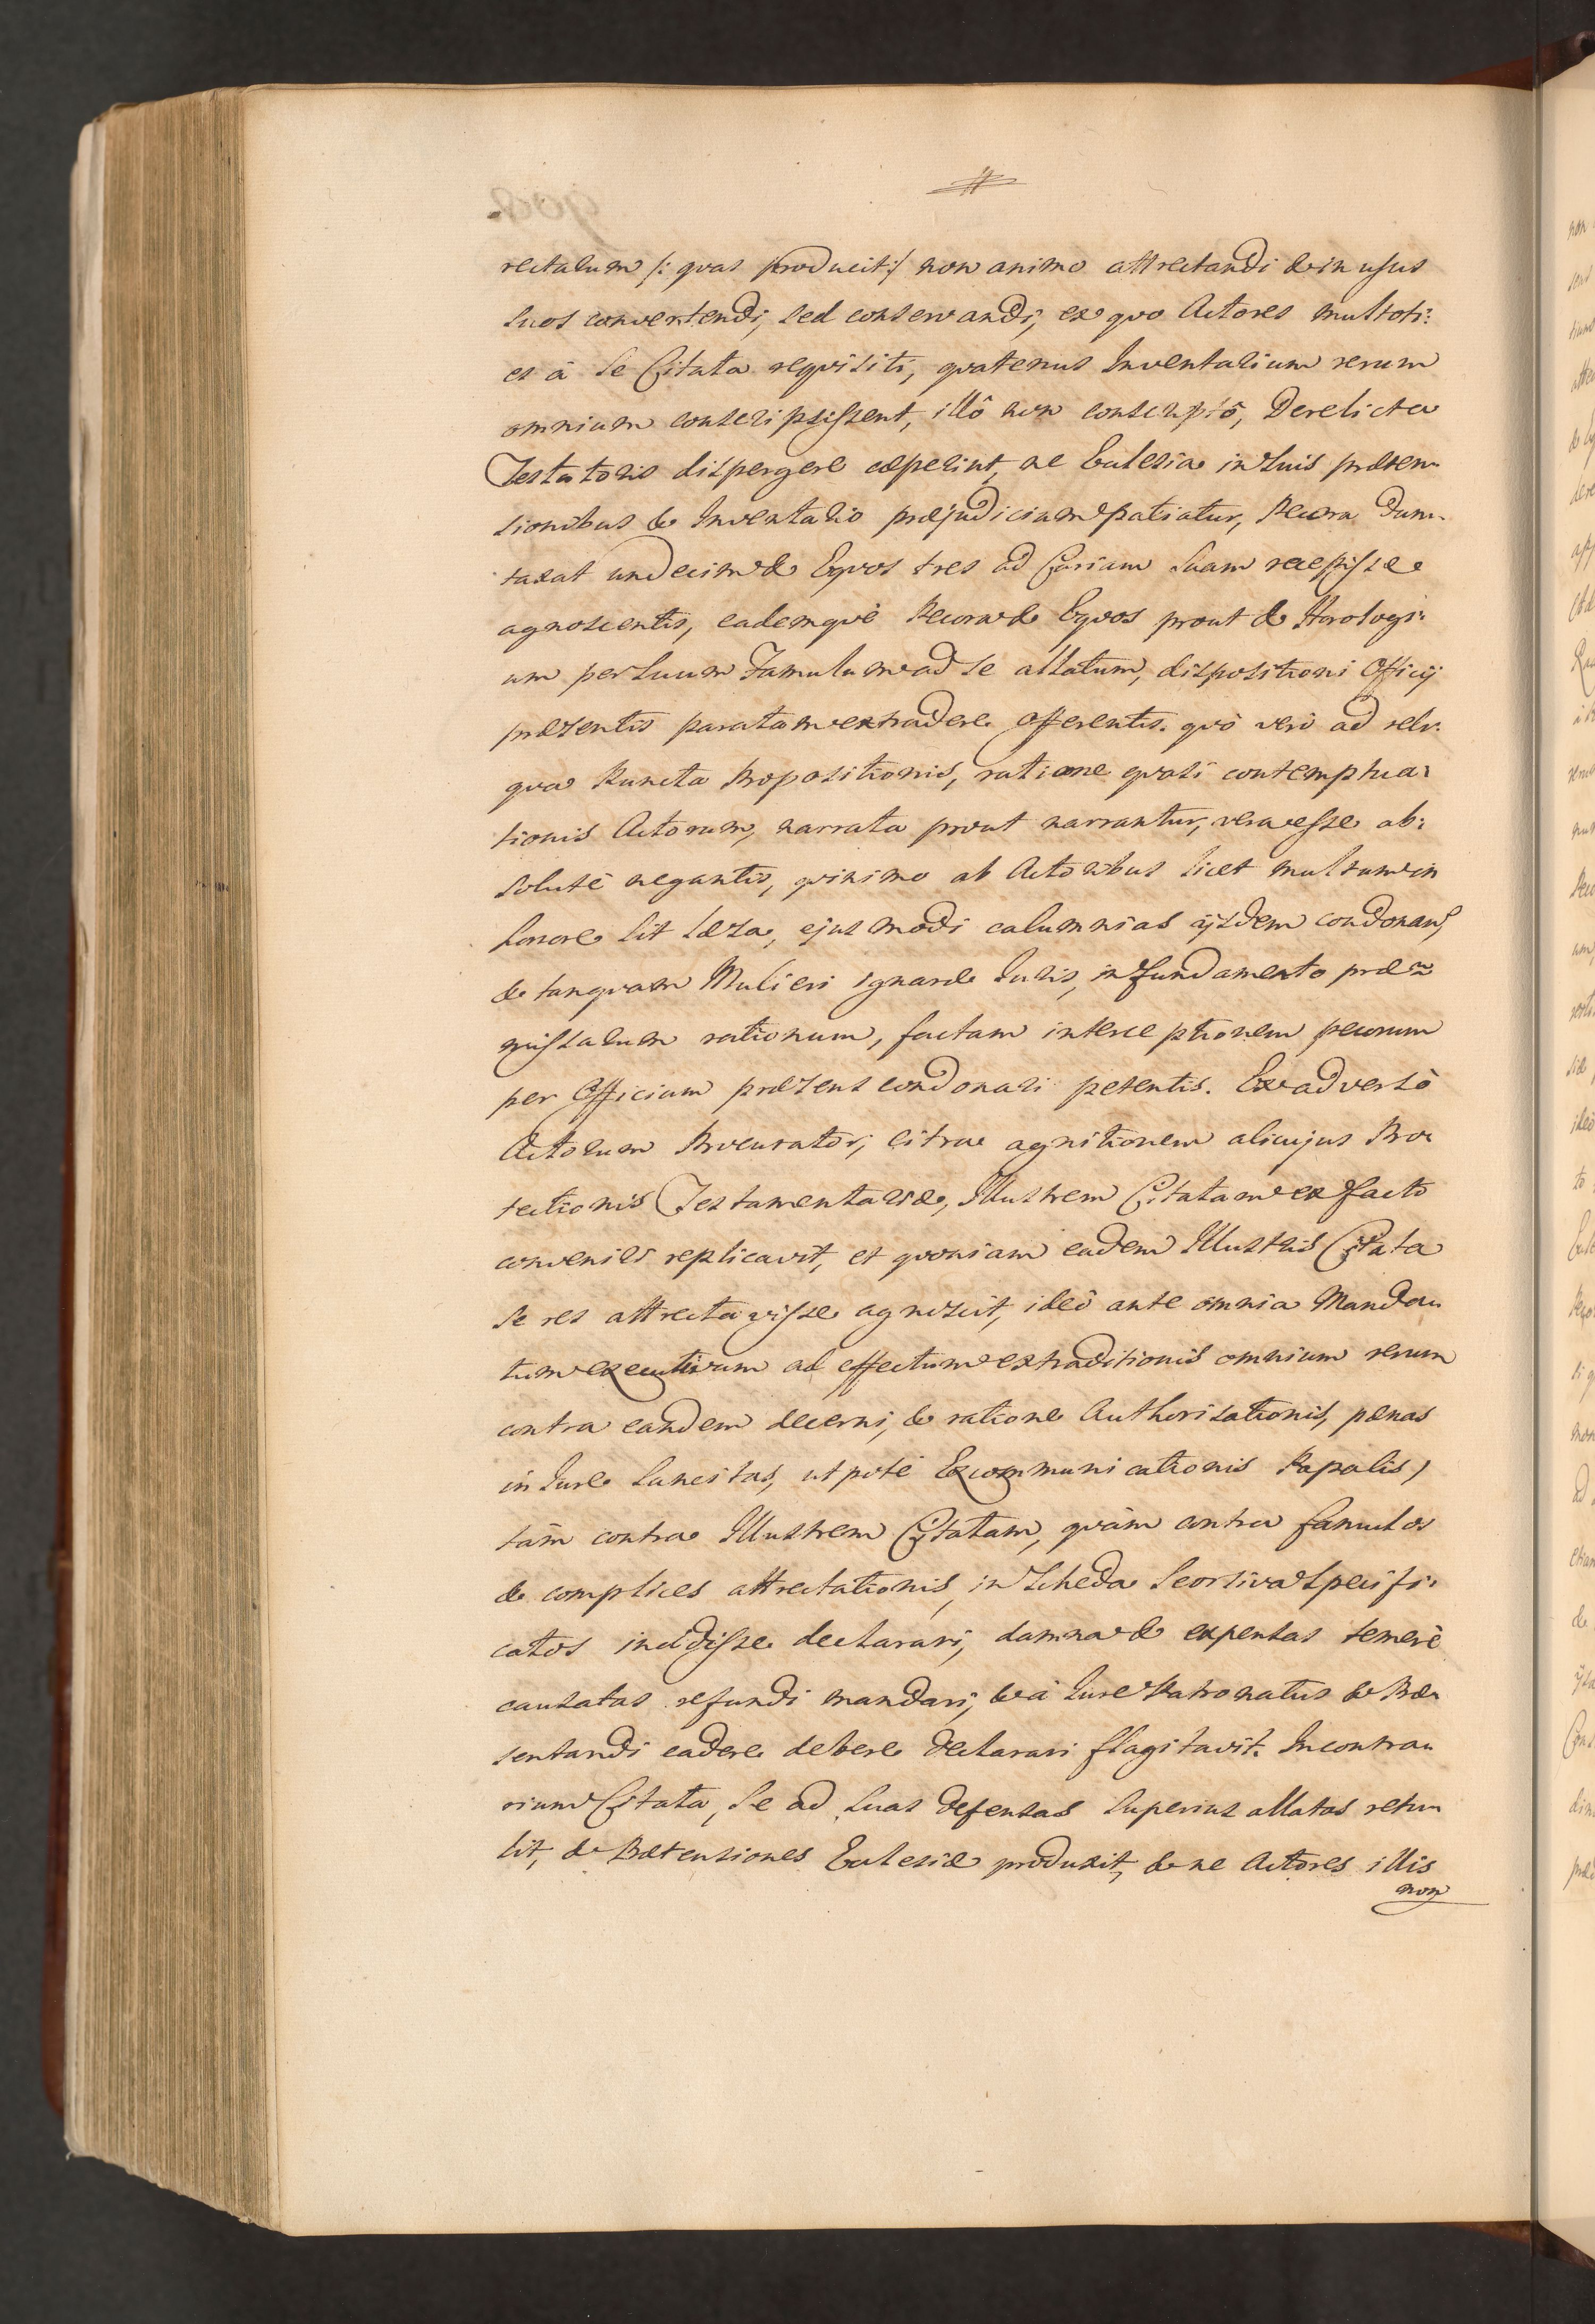 rectarum /: quas producit :/ non animo attrectandi & in usus
suos convertendi, sed conservandi, ex quo Actores multoti:
es à se Citata reqvisiti, qvatenus Inventarium rerum
omnium conscripsissent, illô non conscriptô, Derelicta
Testatoris dispergere cæperint, ne Eccl̃esia in suis præten„
sionibus & Inventario præjudicium patiatur, Pecora dun„
taxat undecim & Eqvos tres ad Curiam suam recepisse
agnoscentis, eademqve Pecora & Eqvos prout & Horologi:
um per suum Famulum ad se allatum, dispositioni Officij
præsentis paratam extradere offerentis. qvò verò ad reli:
qva Puncta Propositionis, ratione qvasi contemptua:
tionis Actorum, narrata prout narrantur, vera esse ab:
solutè negantis, qvinimo ab Actoribus licet multum in
honore sit læsa, ejusmodi calumnias ijsdem condonan̄,
& tanqvam Mulieri ignaræ Juris, in fundamento præ„
missarum rationum, factam interceptionem pecorum
per Officium præsens condonari petentis. Ex adversô
Actorum Procurator, citra agnitionem alicujus Pro„
tectionis Testamentariæ, Illustrem Citatam ex facto
conveniri replicavit, et qvoniam eadem Illustris Citata
se res attrectavisse agnoscit, ideò ante omnia Manda„
tum executivum ad effectum extraditionis omnium rerum
contra eandem decerni, & ratione Authorisationis, pœnas
in Jure sancitas, utpotè Excommunicationis Papalis,
tàm contra Illustrem Citatam, qvàm contra famulos
& complices attrectationis, in Scheda seorsiva specifi:
catos incidisse declarari, damna & expensas temerè
causatas refundi mandari, & à Jure Patronatus & Præ„
sentandi cadere debere declarari flagitavit. In contra„
rium Citata, se ad suas defensas superius allatas retu„
lit, & Prætensiones Ecclesiæ produxit, & ne Actores illis
non